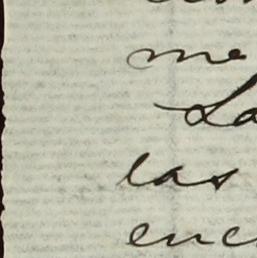 me
La
las
enc